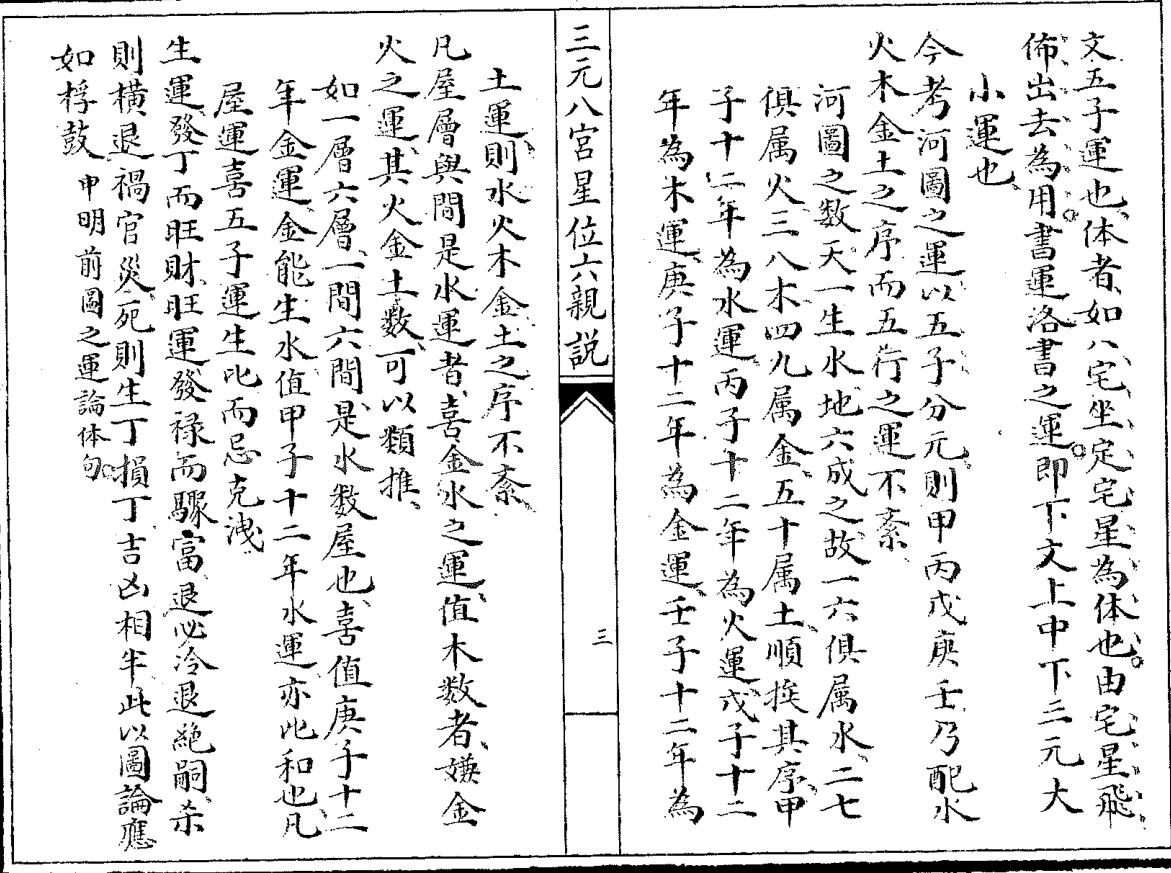 文五子運也体者如八宅坐定宅星為体也由宅星飛
佈出去為用書運洛書之運即下文上中下三元大
小運也
今考河圖之運以五子分元則甲丙戊庚壬乃配水
火木金土之序而五行之運不紊
河圖之数天一生水地六成之故一六俱属水二七
俱属火三八木四九属金五十属土順挨其序甲
子十二年為水運丙子十二年為火運戊子十二
年為木運庚子十二年為金運壬子十二年為
三元八宮星位六親説
三
土運則水火木金土之序不紊
凡屋層與間是水運者喜金水之運值木数者嫌金
火之運其火金土数可以類推
如一層六層一間六間是水数屋也喜值庚子十二
年金運金能生水值甲子十二年水運亦比和也凡
屋運喜五子運生比而忌克洩
生運發丁而旺財旺運發禄而驟富退必冷退絕嗣杀
則横退禍官災死則生丁損丁吉凶相半此以圖論應
如桴鼓申明前圖之運論体句